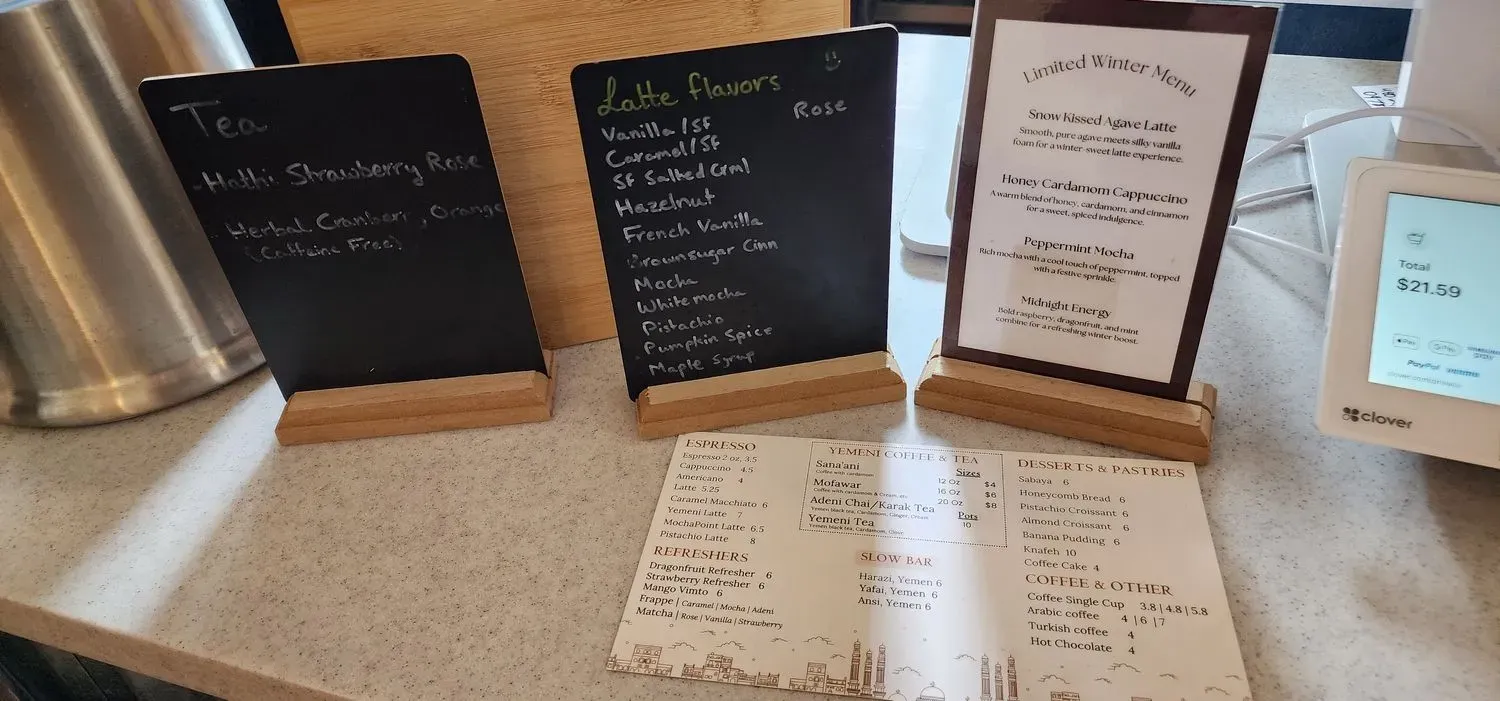 Tea
- Hathi Strawberry Rose
- Herbal Cranberr, Orange
(Caffeine Free)
Latte flavors
Rose
Vanilla/SF
Caramel/SF
SF Salted Crml
Hazelnut
French Vanilla
Brownsugar Cinn
Mocha
White mocha
Pistachio
Pumpkin Spice
Maple Syrup
Limited Winter Menu
Snow Kissed Agave Latte
Smooth, pure agave meets silky vanilla
foam for a winter-sweet latte experience.
Honey Cardamom Cappuccino
A warm blend of honey, cardamom, and cinnamon
for a sweet, spiced indulgence.
Peppermint Mocha
Rich mocha with a cool touch of peppermint, topped
with a festive sprinkle.
Midnight Energy
Bold raspberry, dragonfruit, and mint
combine for a refreshing winter boost.
Total
$21.59
Pay
Pay
PayPal venmo
clover
ESPRESSO
Espresso 2 oz, 3.5
Cappuccino 4.5
Americano 4
Latte 5.25
Caramel Macchiato 6
Yemeni Latte 7
MochaPoint Latte 6.5
Pistachio Latte 8
REFRESHERS
Dragonfruit Refresher 6
Strawberry Refresher 6
Mango Vimto 6
Frappe | Caramel | Mocha | Adeni
Matcha | Rose | Vanilla | Strawberry
YEMENI COFFEE & TEA
Sana'ani
Coffee with cardamom
Mofawar
Coffee with cardamom & Cream, etc
Adeni Chai/Karak Tea
Yemen black tea, Cardamom, Ginger, Cream
Yemeni Tea
Yemen black tea, Cardamom, Clove
Sizes
12 Oz $4
16 Oz $6
20 Oz $8
Pots
10
SLOW BAR
Harazi, Yemen 6
Yafai, Yemen 6
Ansi, Yemen 6
DESSERTS & PASTRIES
Sabaya 6
Honeycomb Bread 6
Pistachio Croissant 6
Almond Croissant 6
Banana Pudding 6
Knafeh 10
Coffee Cake 4
COFFEE & OTHER
Coffee Single Cup 3.8 | 4.8 | 5.8
Arabic coffee 4 | 6 | 7
Turkish coffee 4
Hot Chocolate 4